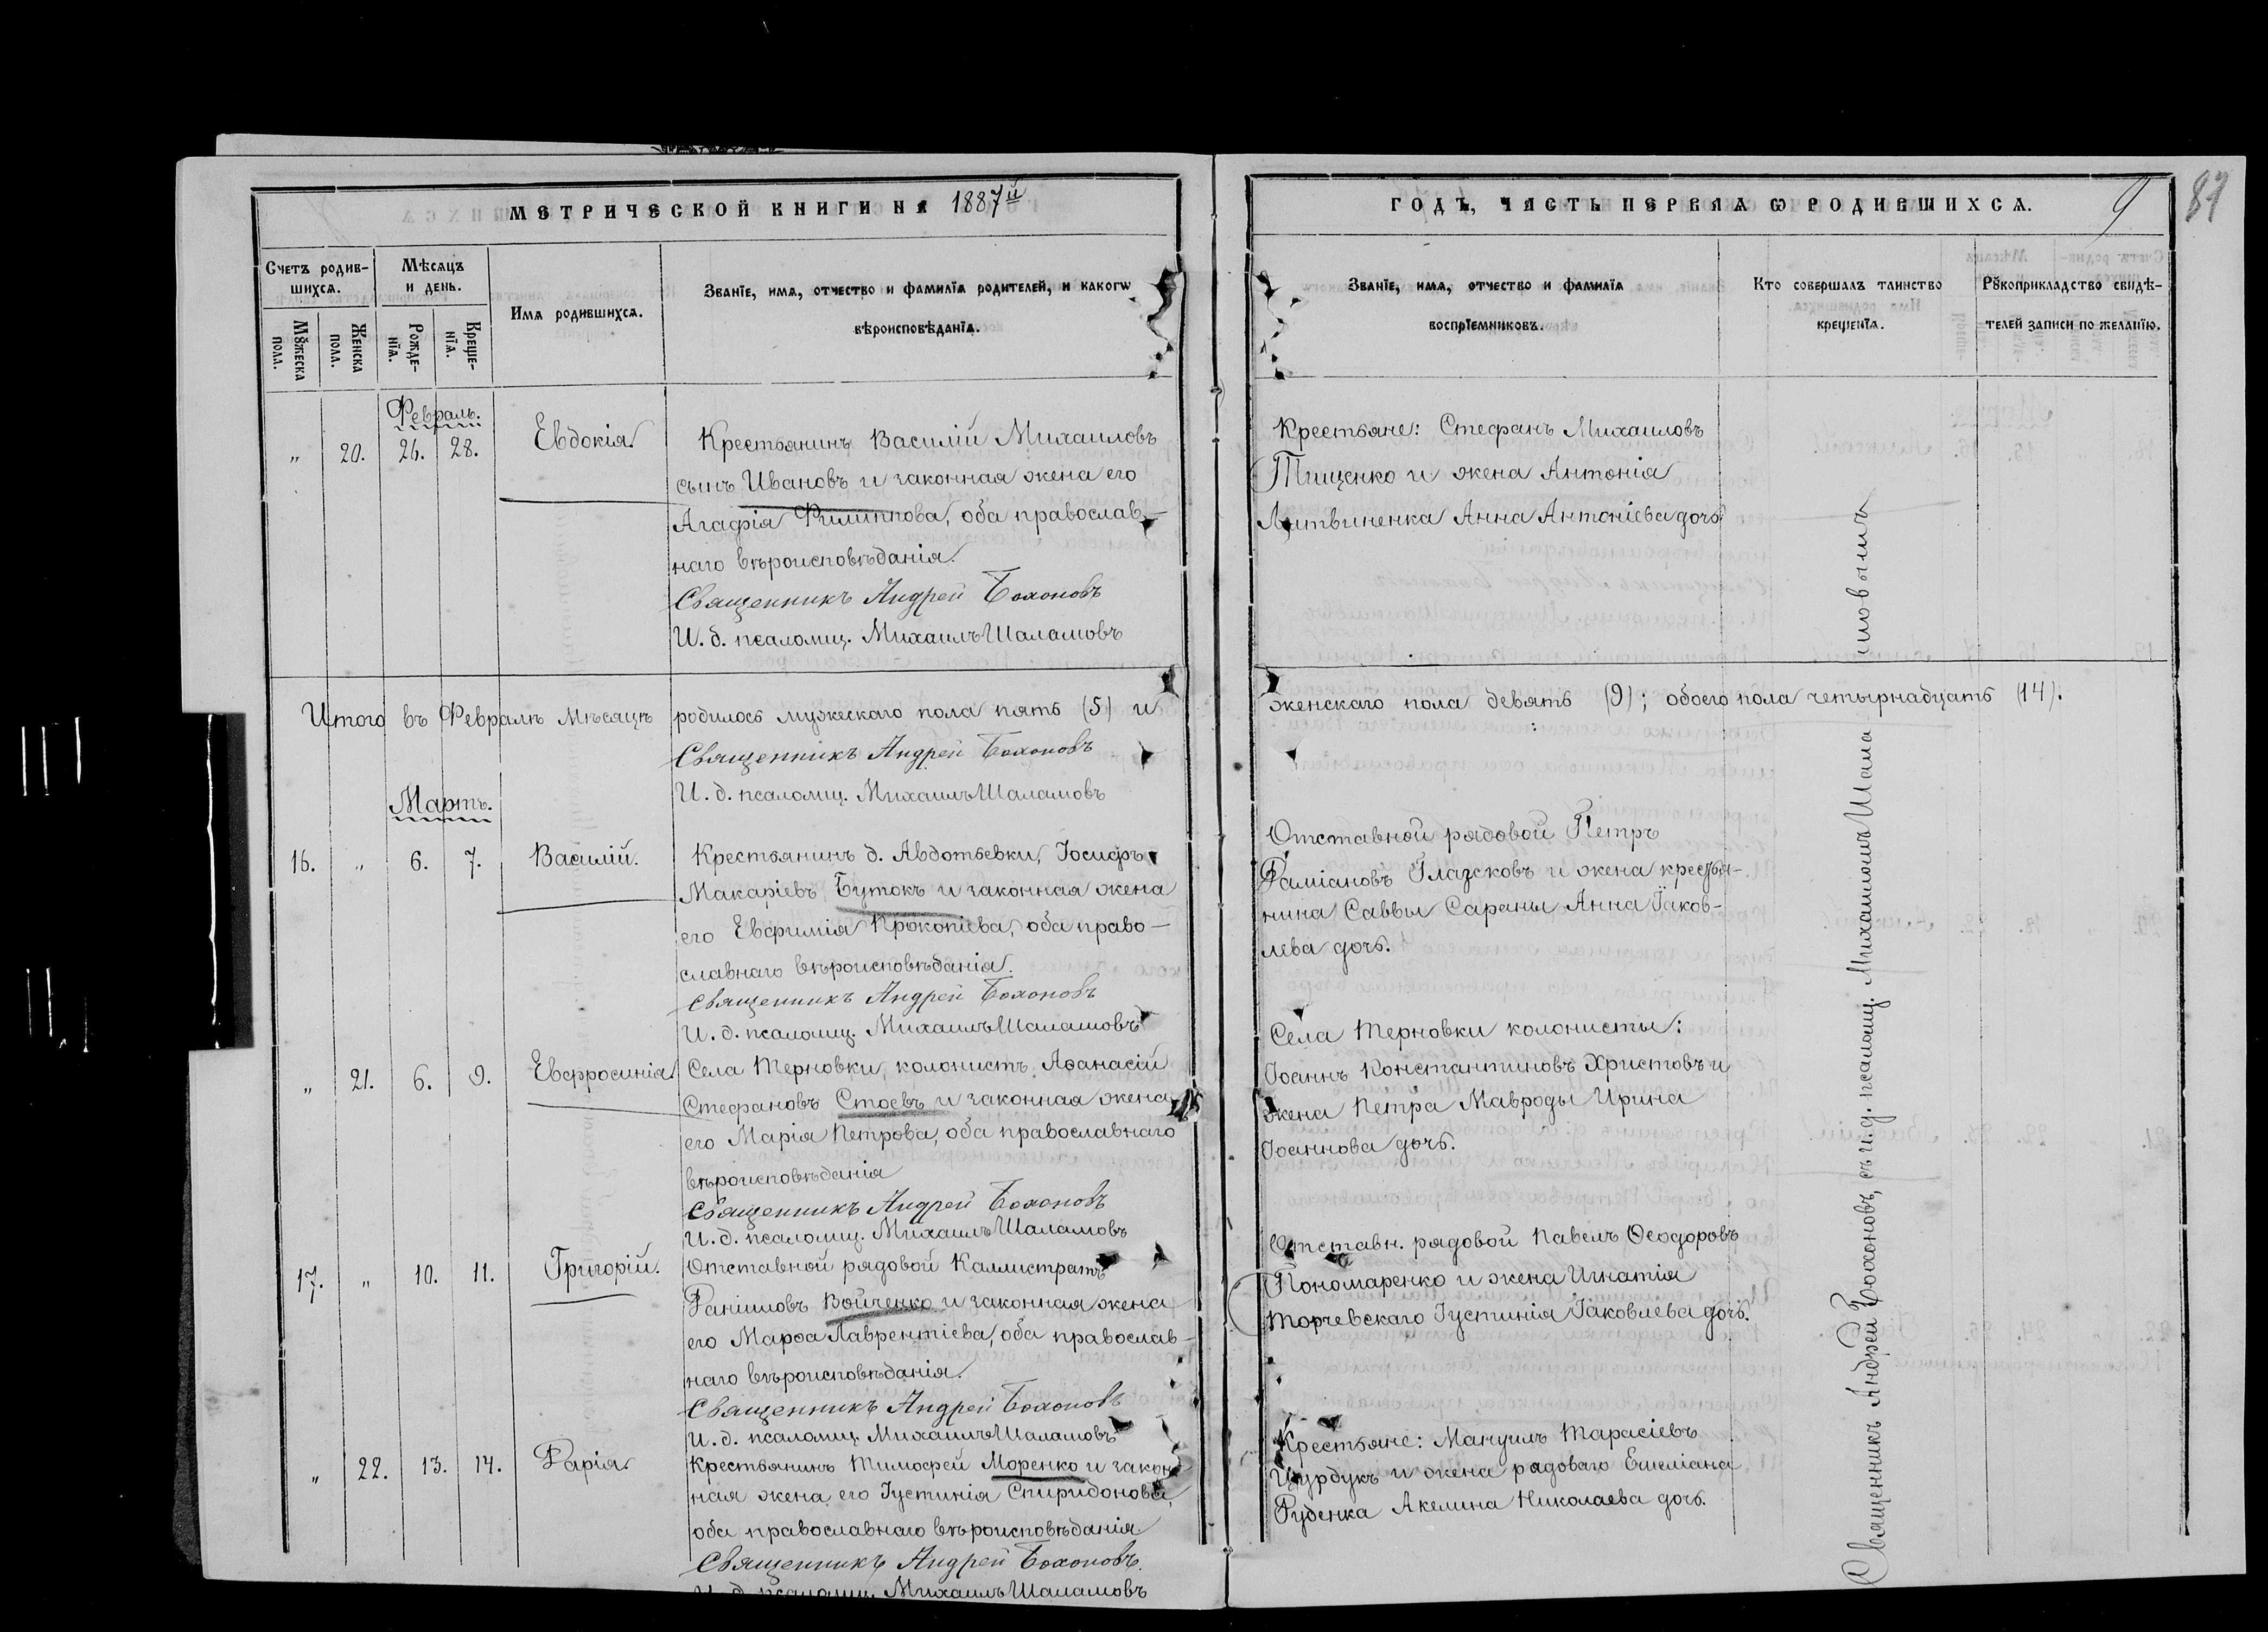 МЕТРИЧЕСКОЙ КНИГИ НА 1887й
Счетъ родив-
шихся.
Мѣсяцъ
и день.
Имя родившихся.
Званїе, имя, отчество и фамилїя родителей, и какогѡ
вѣроисповѣданїя.
Мꙋжеска
пола.
Женска
пола.
Рожде-
нїя.
Креще-
нїя.
Февраль.
" 20. 26. 28. Евдокія
Крестьянинъ Василій Михаиловъ
сынъ Ивановъ и законная жена его
Агафія Филиппова, оба православ-
наго вѣроисповѣданія.
Священникъ Андрей Бохоновъ
И. д. псаломщ. Михаилъ Шаламовъ
Итого въ Февралѣ мѣсяцѣ родилось мужескаго пола пять (5) и
Священникъ Андрей Бохоновъ
И. д. псаломщ. Михаилъ Шаламовъ
Мартъ.
16. " 6. 7. Василій.
Крестьянинъ д. Авдотьевки, Іосифъ
Макаріевъ Бутокъ и законная жена
его Евфимія Прокопіева, оба право-
славнаго вѣроисповѣданія.
Священникъ Андрей Бохоновъ
И. д. псаломщ. Михаилъ Шаламовъ
" 21. 6. 9. Евфросинія
Села Терновки, колонистъ, Аѳанасій
Стефановъ Стоевъ и законная жена
его Марія Петрова, оба православнаго
вѣроисповѣданія
Священникъ Андрей Бохоновъ
И. д. псаломщ. Михаилъ Шаламовъ
17. " 10. 11. Григорій.
Отставной рядовой Каллистратъ
Даніиловъ Войченко и законная жена
его Марѳа Лаврентіева, оба православ-
наго вѣроисповѣданія.
Священникъ Андрей Бохоновъ
И. д. псаломщ. Михаилъ Шаламовъ
" 22. 13. 14. Дарія
Крестьянинъ Тимофей Моренко и закон
ная жена его Іустинія Спиридонова,
оба православнаго вѣроисповѣданія
Священникъ Андрей Бохоновъ.
И. д. псаломщ. Михаилъ Шаламовъ
ГОДЪ, ЧАСТЬ ПЕРВАЯ Ѡ РОДИВШИХСЯ.
9
Званїе, имя, отчество и фамилїя
воспрїемниковъ.
Кто совершалъ таинство
крещенїя.
Рꙋкоприкладство свидѣ-
телей записи по желанїю.
Крестьяне: Стефанъ Михаиловъ
Тищенко и жена Антонія
Литвиненка Анна Антоніева дочь.
женскаго пола девять (9); обоего пола четырнадцать (14).
Отставной рядовой Петръ
Даміановъ Глазковъ и жена крестья-
нина Саввы Сараны Анна Іаков-
лева дочь.
Села Терновки колонисты:
Іоаннъ Константиновъ Христовъ и
жена Петра Мавроды Ирина
Іоаннова дочь.
Отставн. рядовой Павелъ Ѳеодоровъ
Пономаренко и жена Игнатія
Торчевскаго Іустинія Іаковлева дочь.
Крестьяне: Мануилъ Тарасіевъ
Цурдукъ и жена рядоваго Емеліана
Руденка Акелина Николаева дочь.
Священникъ Андрей Бохоновъ, съ и. д. псаломщ. Михаиломъ Шаламовымъ